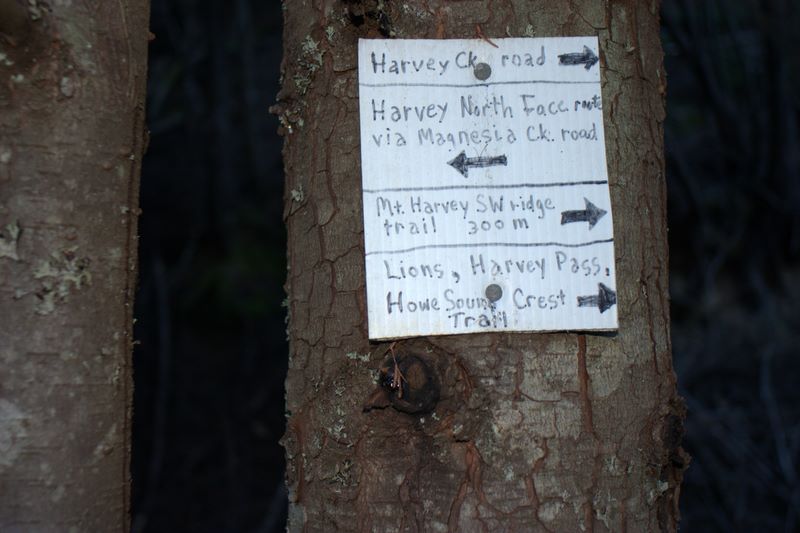 Harvey Ck. road
Harvey North Face route
via Magnesia Ck. road
Mt. Harvey SW ridge
trail 300 m
Lions, Harvey Pass,
Howe Sound Crest
Trail